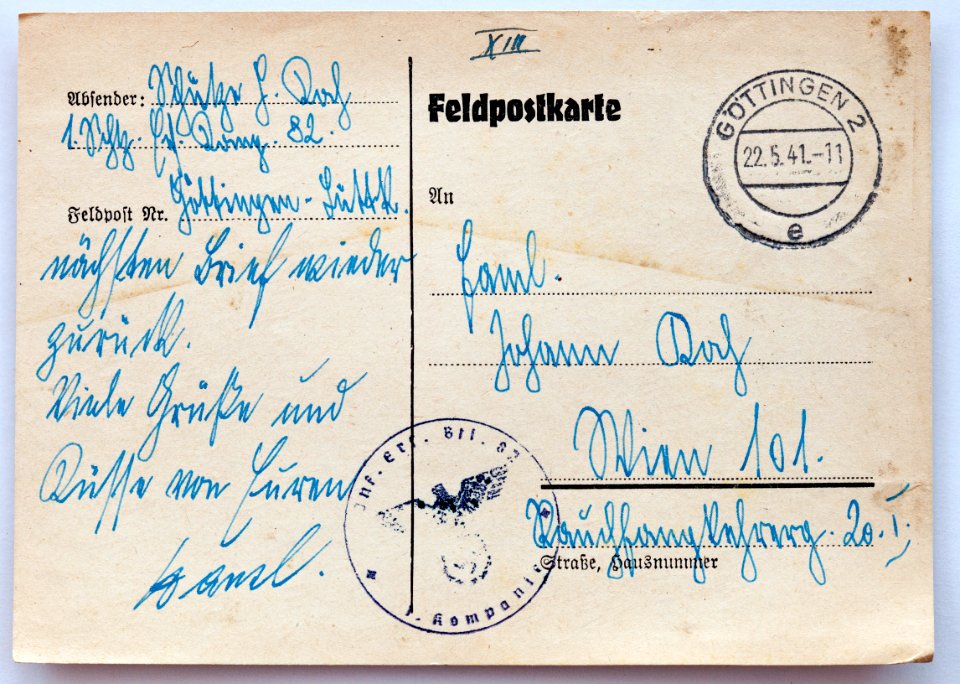 XIII
Absender: Schütze H. Koch
1. Schtz. Ers. Komp. 82.
Göttingen-
Feldpost Nr.
nächsten Brief wieder
zurück.
Viele Grüße und
Küsse von Euren
Hansl.
Feldpostkarte
GÖTTINGEN 2
22.5.41.-11
e
An
Faml.
Johann Koch
Wien 101.
Rauchfangkehrerg. 20. I,
Straße, Hausnummer
Inf. Ers. Btl. 82
1. Kompanie